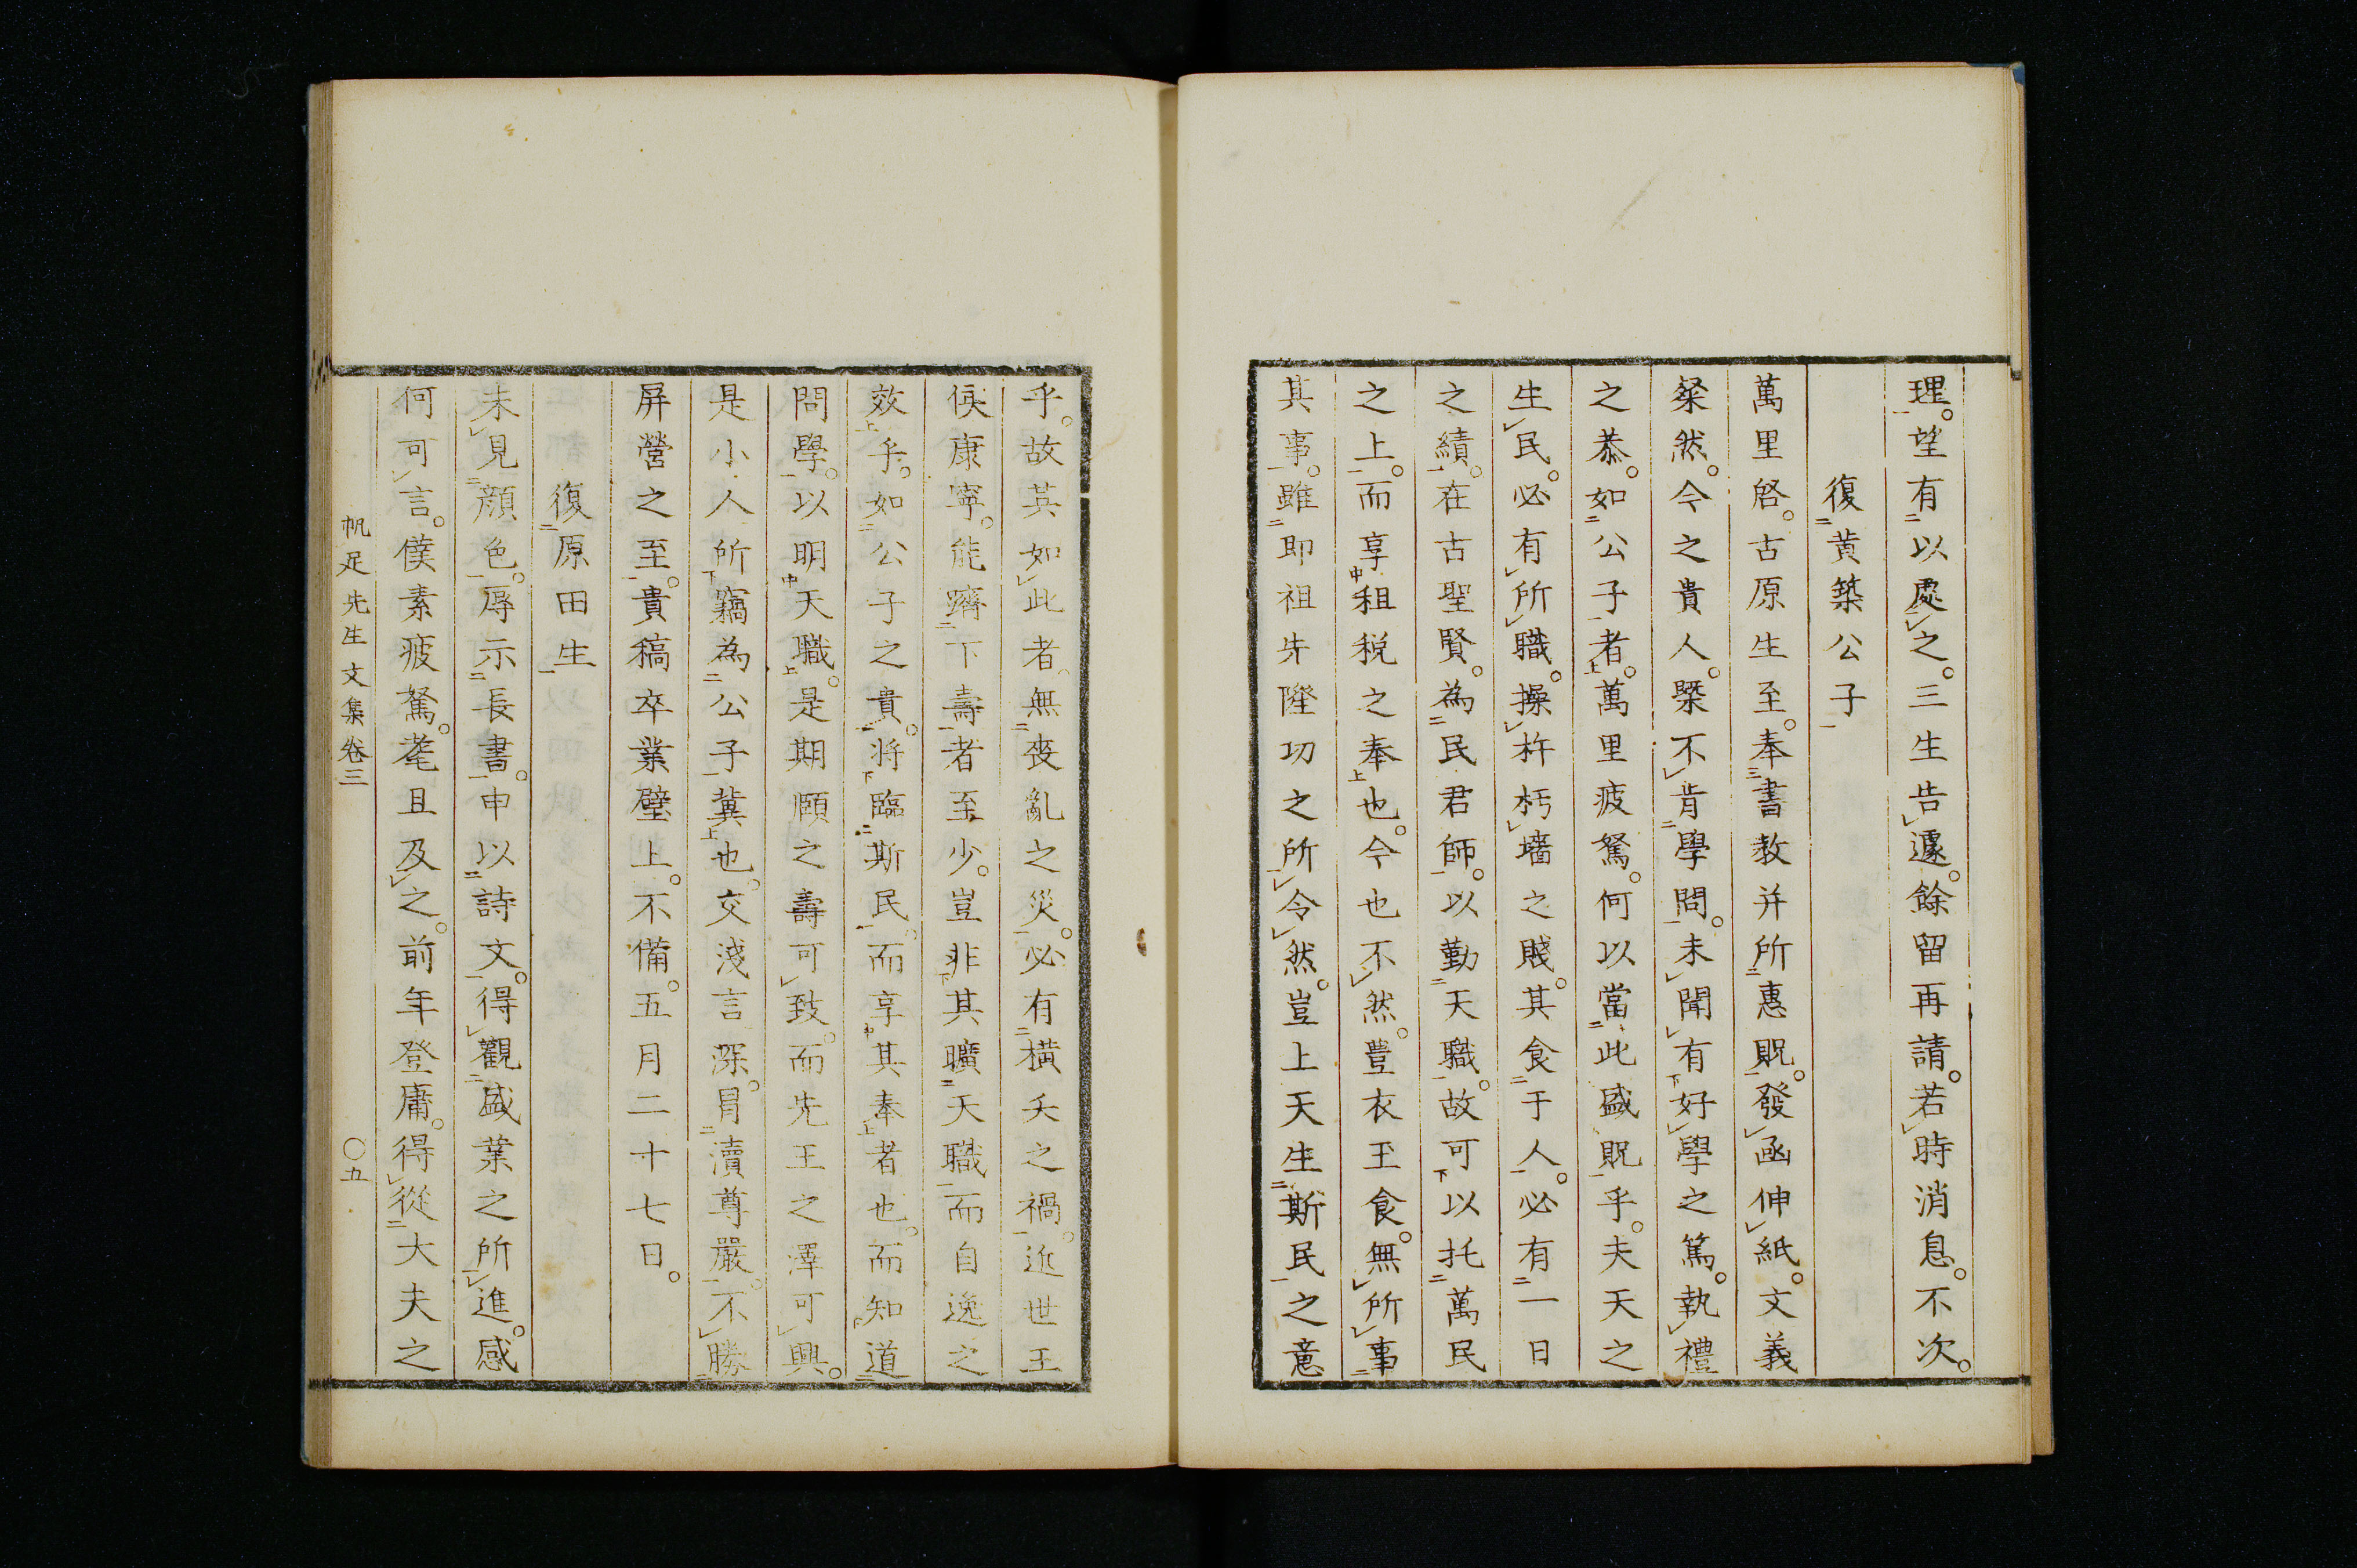 理。望有以處之。三生告遽。餘留再請。若時消息。不次。
復黃築公子
萬里啓。古原生至。奉書教并所惠貺。發凾伸紙。文義
粲然。今之貴人。槩不肯學問。未聞有好學之篤。執禮
之恭。如公子者。萬里疲駑。何以當此盛貺乎。夫天之
生民。必有所職。操杵杇墻之賤。其食于人。必有一日
之績。在古聖賢。為民君師。以勤天職。故可以托萬民
之上。而享租税之奉也。今也不然。豊衣玉食。無所事
其事。雖即祖先隆功之所令然。豈上天生斯民之意
乎。故英如此者。無喪亂之災。必有橫夭之禍。近世王
侯康寧。能躋下壽者至少。豈非其曠天職而自逸之
效乎。如公子之貴。將臨斯民。而享其奉者也。而知道
問學。以明天職。是期頤之壽可致。而先王之澤可興。
是小人所竊為公子冀也。交淺言深。冒瀆尊嚴。不勝
屏營之至。貴稿卒業璧上。不備。五月二十七日。
復原田生
未見顔色。辱示長書。申以詩文。得觀盛業之所進。感
何可言。僕素疲駑。耄且及之。前年登庸。得從大夫之
帆足先生文集卷三
〇五